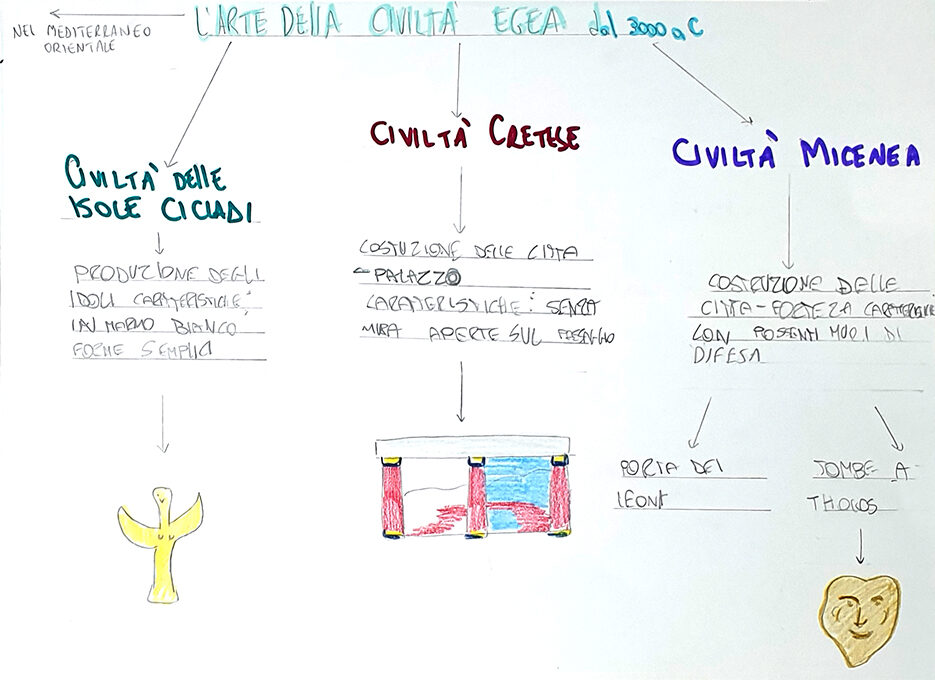 NEL MEDITERRANEO
ORIENTALE
L'ARTE DELLA CIVILTÀ EGEA dal 3000 a C
CIVILTÀ DELLE
ISOLE CICLADI
PRODUZIONE DEGLI
IDOLI CARATTERISTICHE:
IN MARMO BIANCO
FORME SEMPLICI
CIVILTÀ CRETESE
COSTUZIONE DELLE CITTA
-PALAZZO
CARATTERISTICHE: SENZA
MURA APERTE SUL PAESAGGIO
CIVILTÀ MICENEA
COSTRUZIONE DELLE
CITTA-FORTEZA
CON POSSENTI MURI DI
DIFESA
PORTA DEI
LEONI
TOMBE A
THOLOS